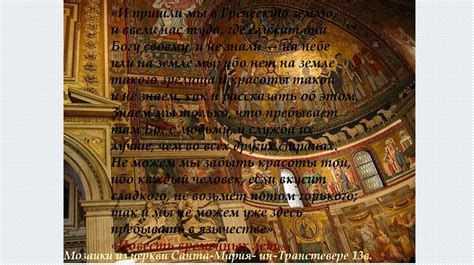 «И пришли мы в Греческую землю,
и ввели нас туда, где служат они
Богу своему, и не знали — на небе
или на земле мы: ибо нет на земле
такого зрелища и красоты такой
и не знаем, как и рассказать об этом.
Знаем мы только, что пребывает
там Бог с людьми, и служба их
лучше, чем во всех других странах.
Не можем мы забыть красоты той,
ибо каждый человек, если вкусит
сладкого, не возьмет потом горького;
так и мы не можем уже здесь
пребывать в язычестве».
«Повесть временных лет»
Мозаики из церкви Санта-Мария- ин-Транстевере 13в.